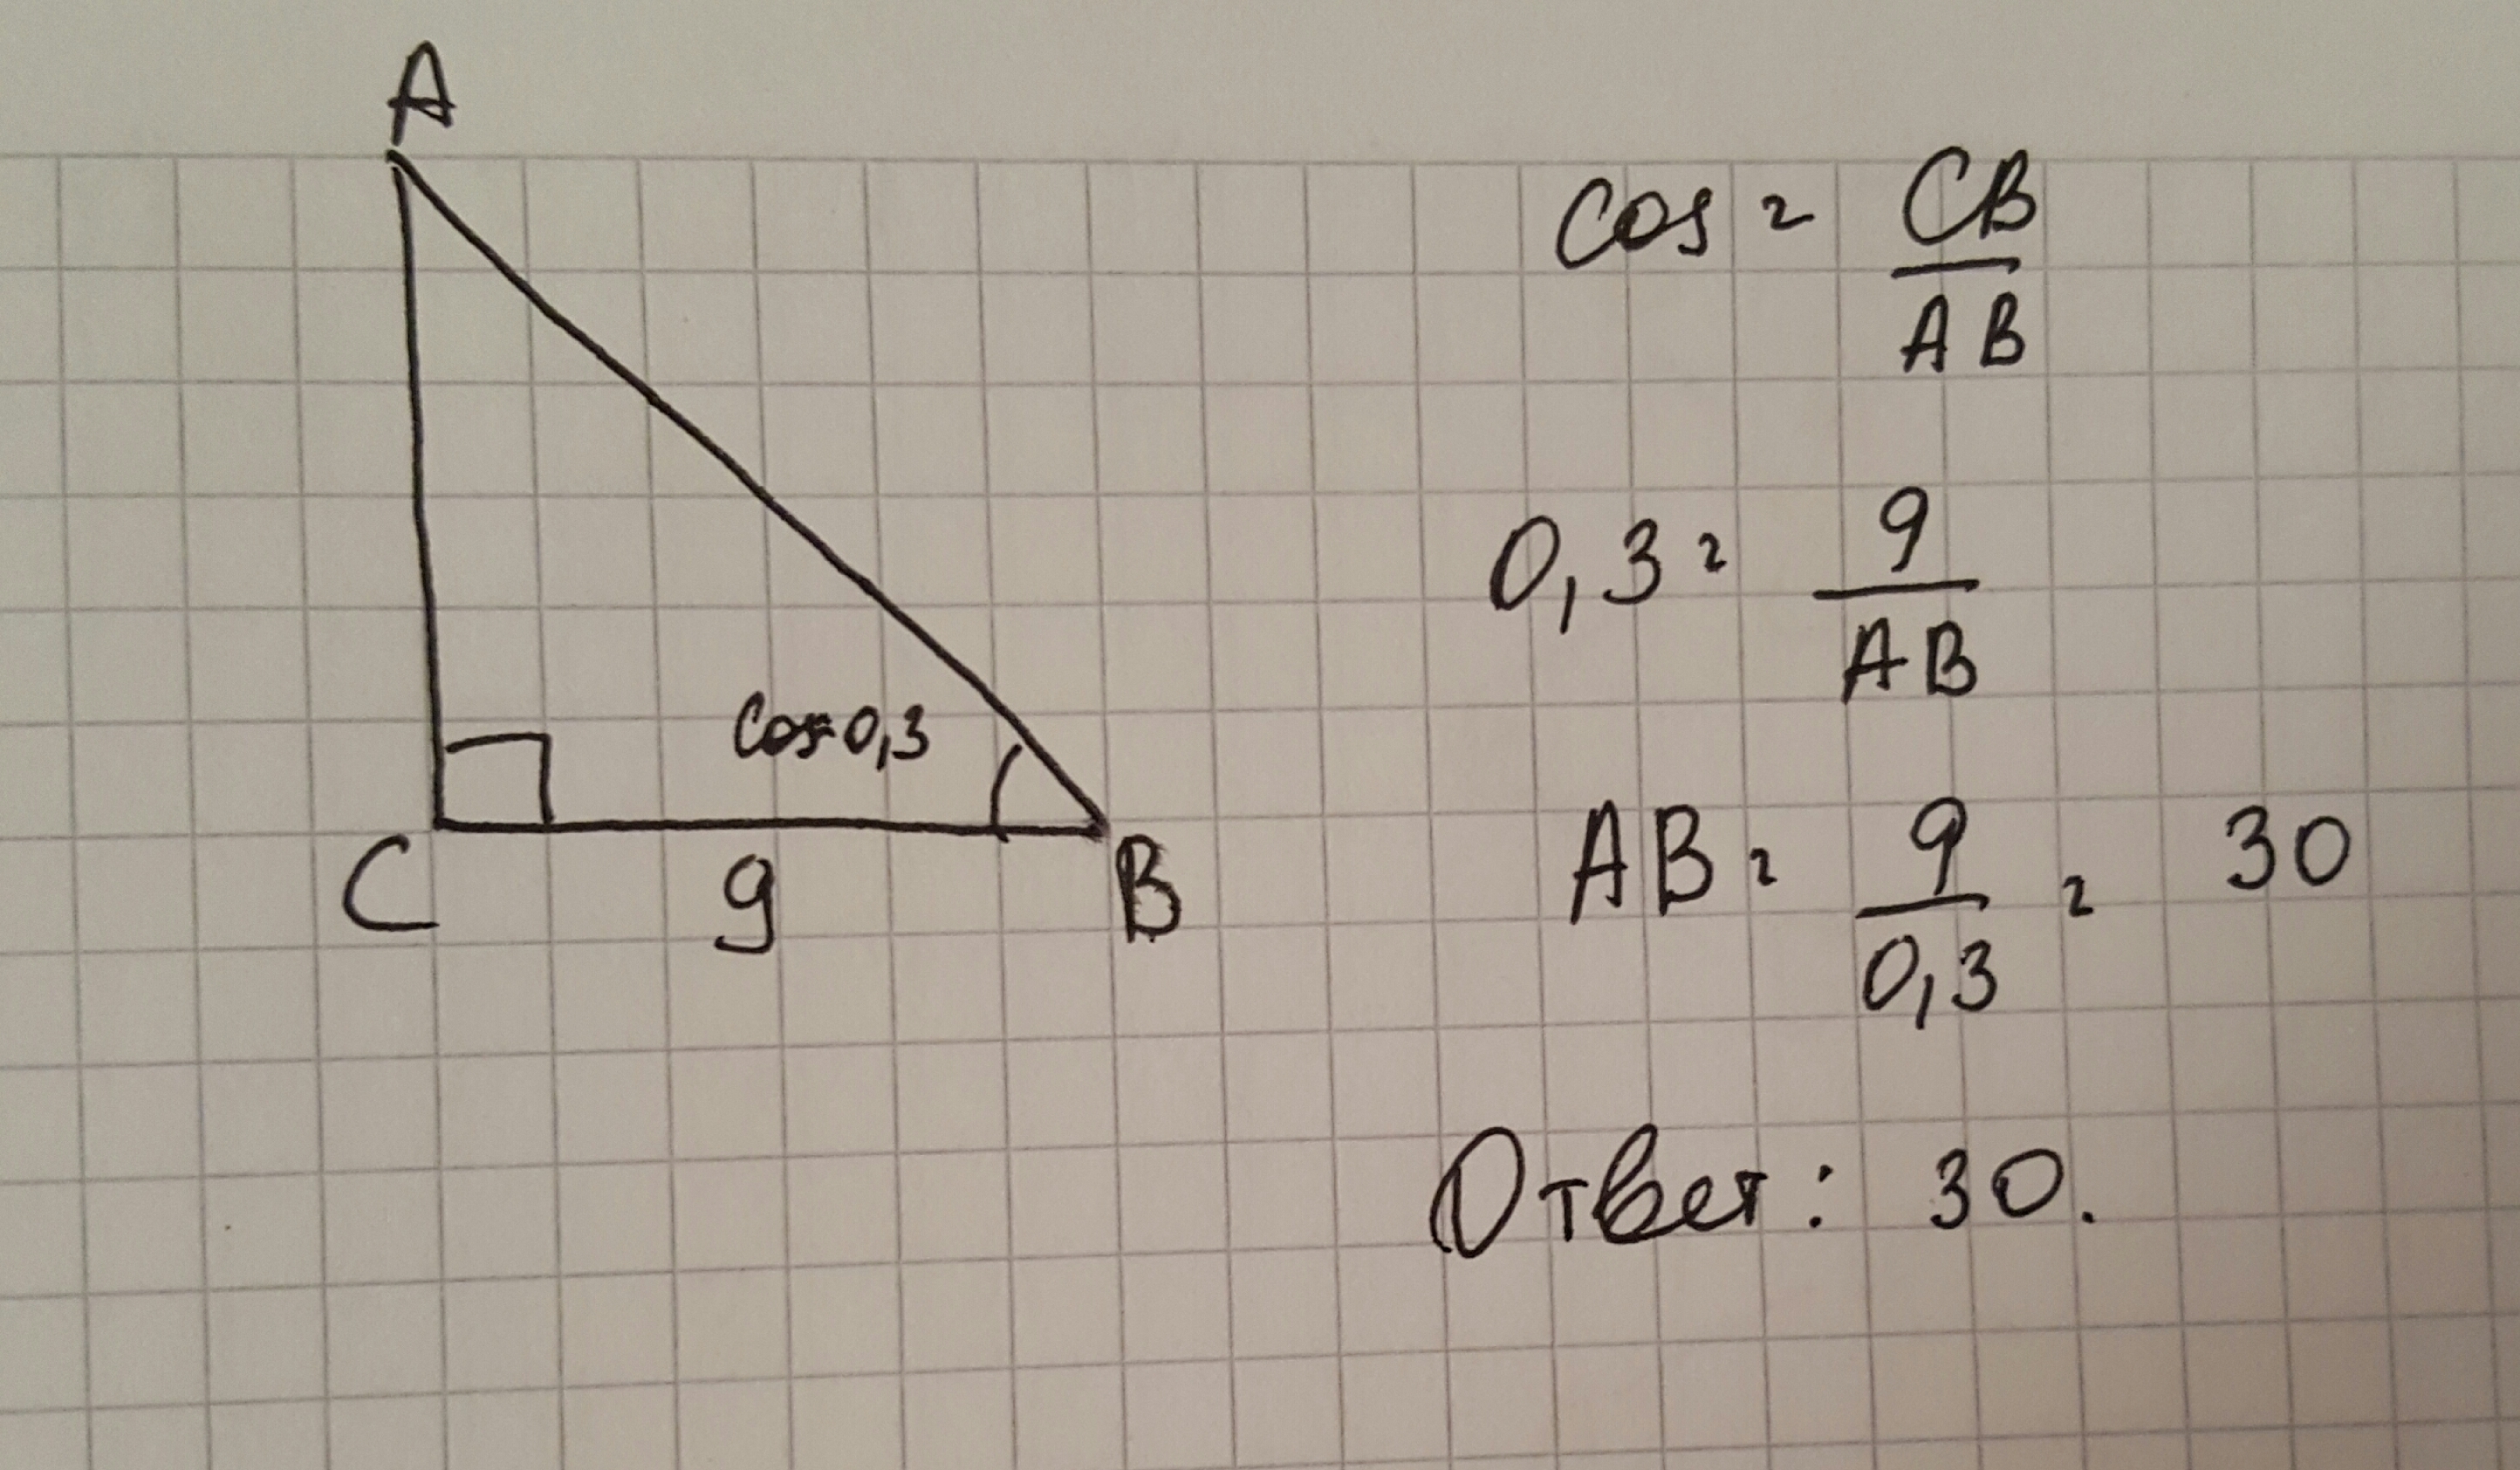 A
cos=0,3
C
9
B
cos = CB/AB
0,3 = 9/AB
AB = 9/0,3 = 30
Ответ: 30.